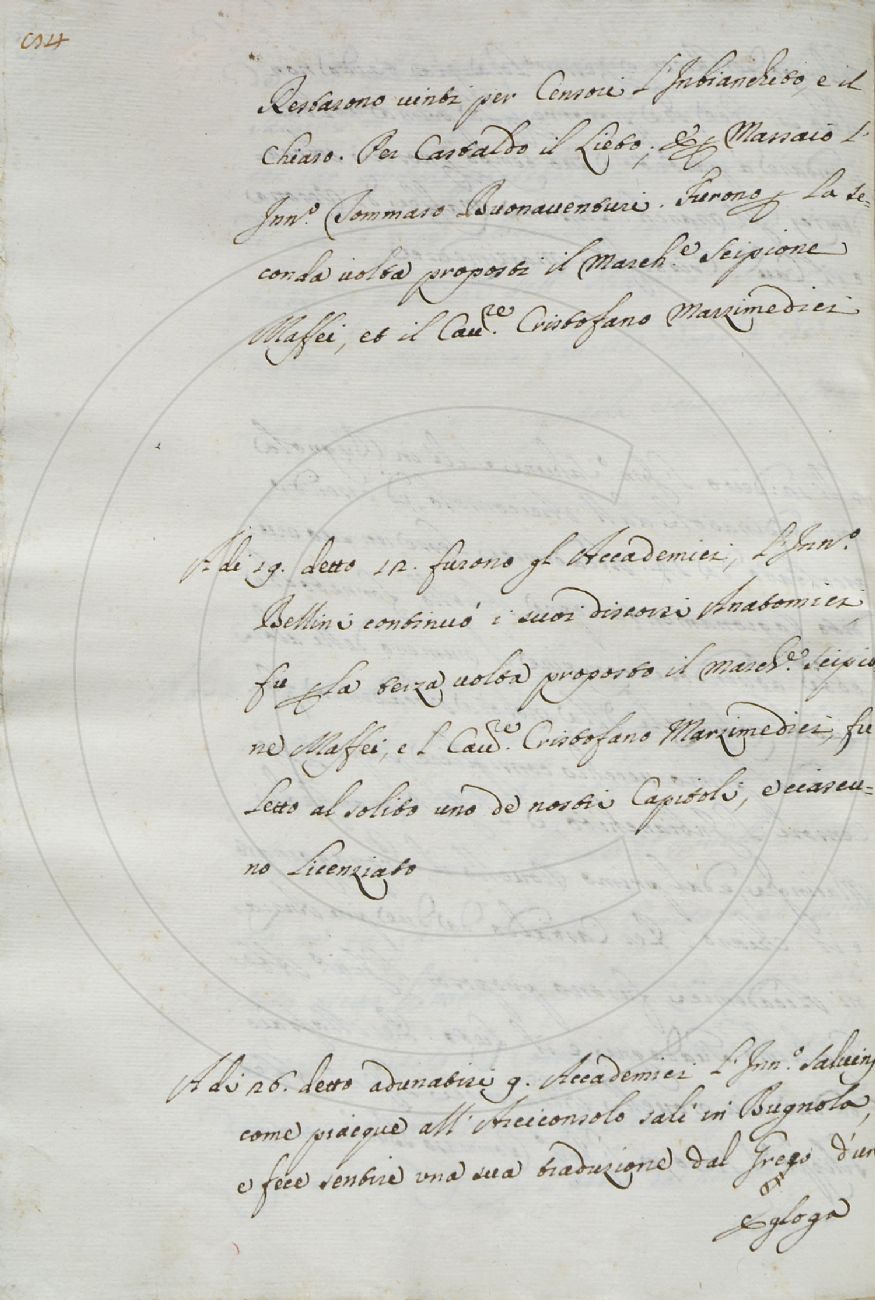 514
Restarono vinti per Censori L'Inbianchito, e il
Chiaro. Per Castaldo il Lieto, e p Massaio L'
Inn.o Tommaso Buonaventuri. Furono p la se=
conda volta proposti il March.e Scipione
Maffei, et il Cav.re Cristofano Marzimedici
A di 19. detto 12. furono gl Accademici, L'Inn.o
Bellini continuó i suoi discorsi Anatomici,
fu p la terza volta proposto il March.e Scipio
ne Maffei, e l Cav.re Cristofano Marzimedici, fu
Letto al solito uno de nostri Capitoli, e ciascu=
no Licenziato
A di 26. detto adunatisi 9. Accademici L'Inn.o Salvini
come piacque all' Arciconsolo salì in Bugnola,
e fece sentire una sua traduzione dal Greco d'un
Egloga